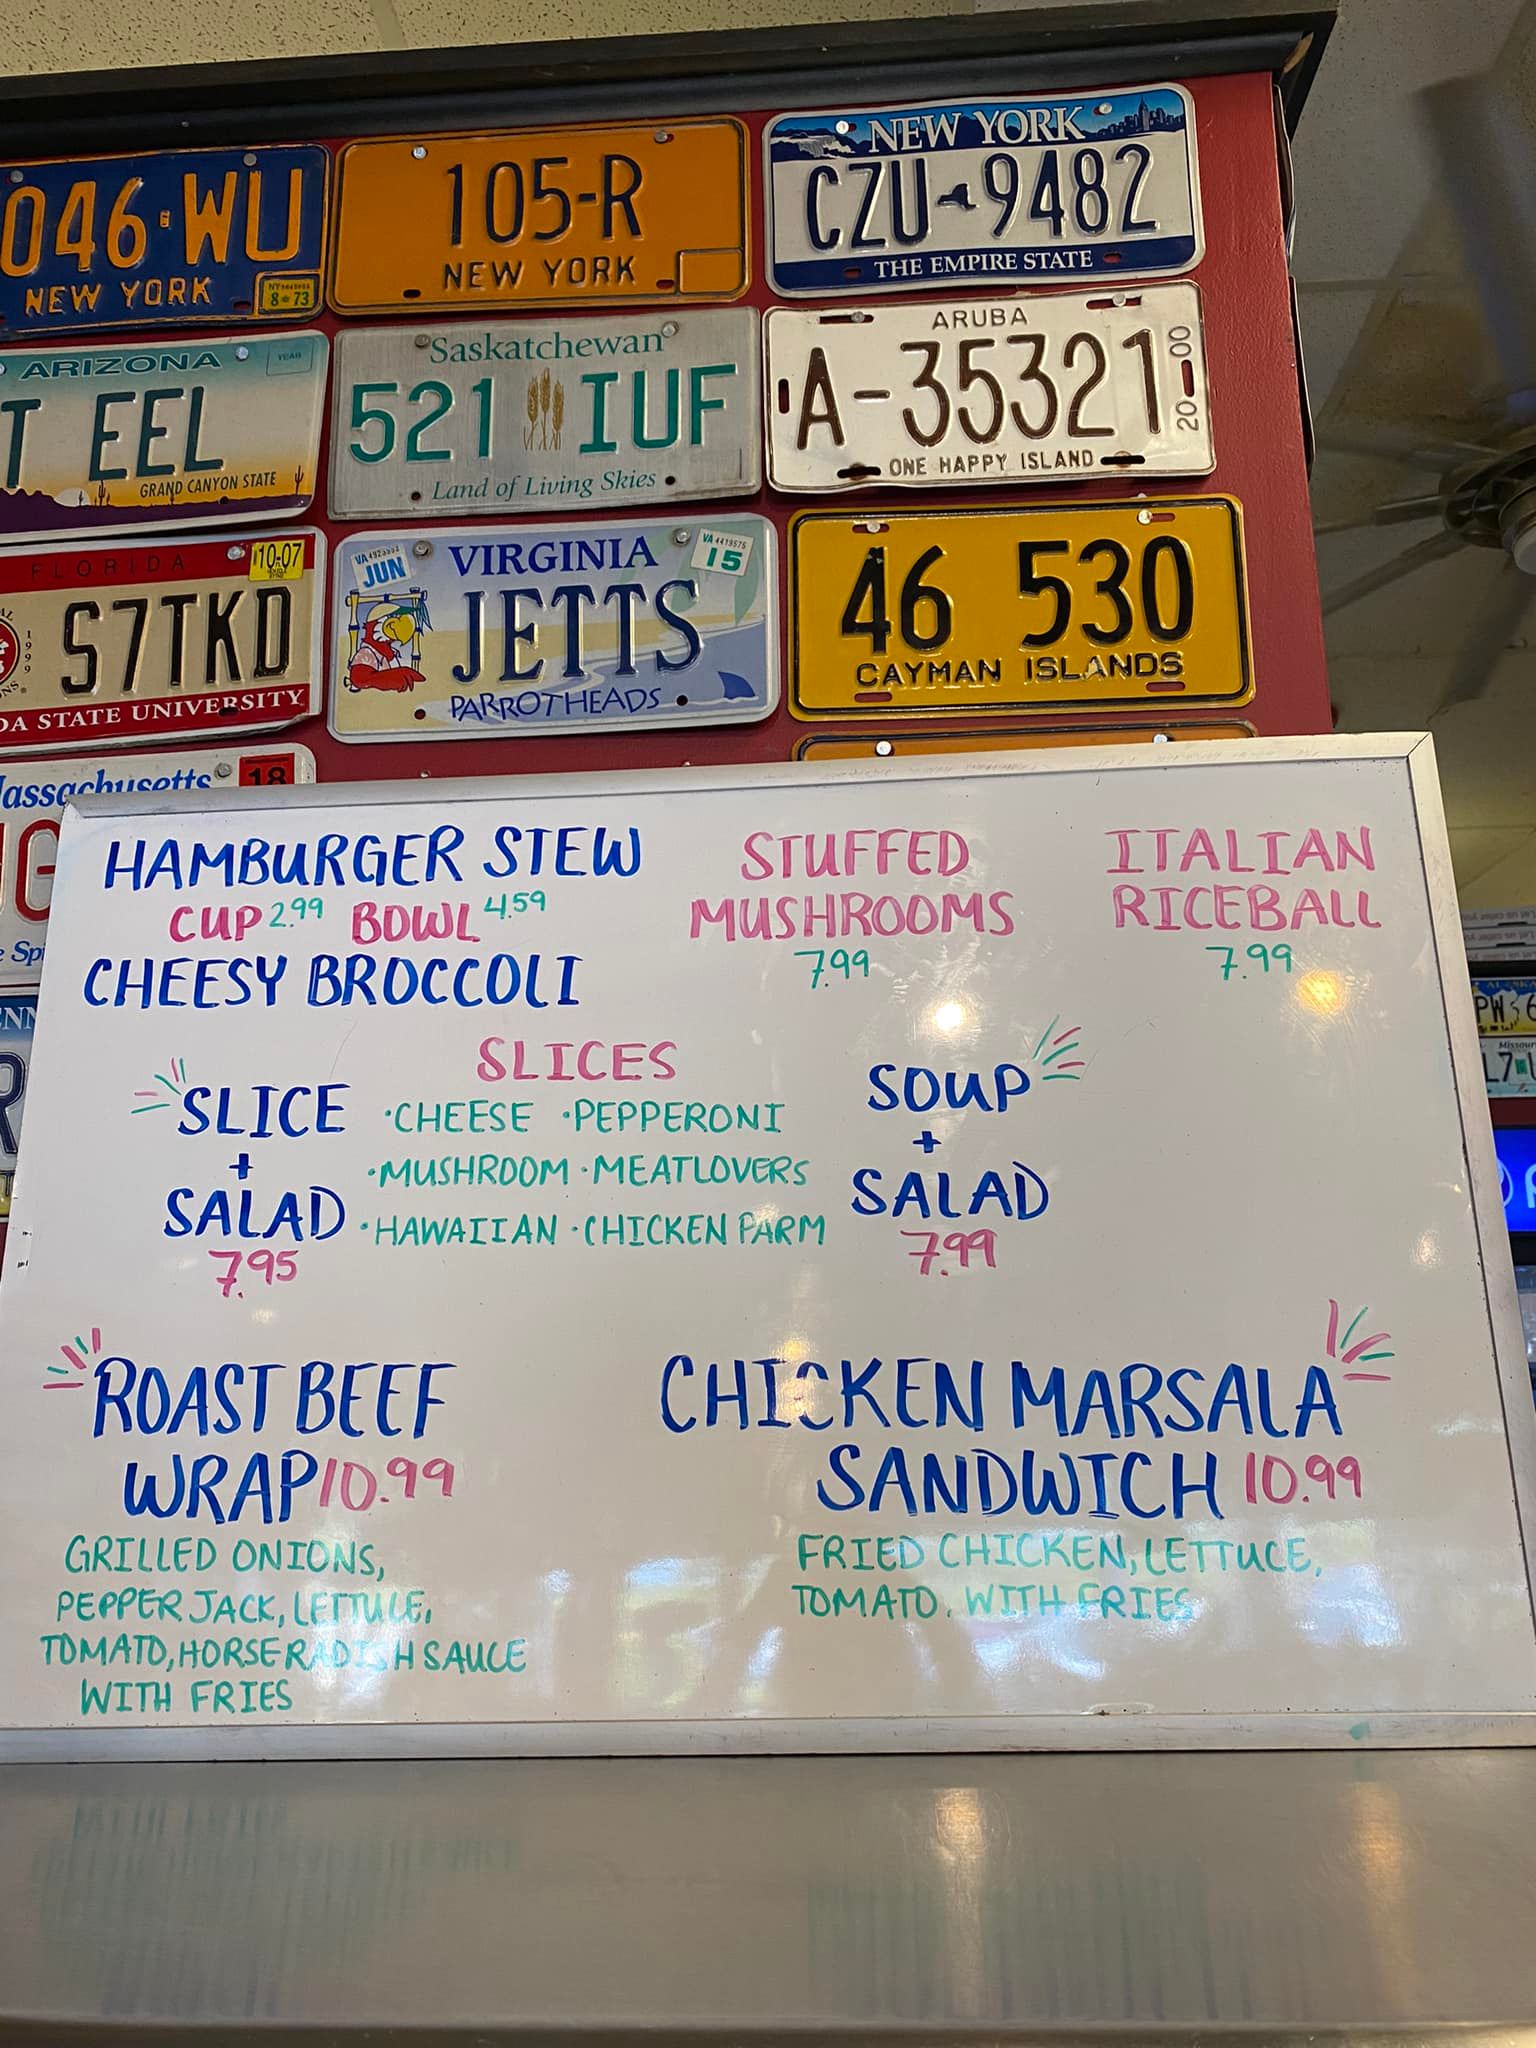 046 WU
NEW YORK
8 73
105-R
NEW YORK
NEW YORK
CZU 9482
THE EMPIRE STATE
ARIZONA
YEAR
T EEL
GRAND CANYON STATE
Saskatchewan
521 IUF
Land of Living Skies
ARUBA
A-35321
20 00
ONE HAPPY ISLAND
FLORIDA
10-07
S7TKD
1999
DA STATE UNIVERSITY
JUN
VIRGINIA
VA 4419575
15
JETTS
PARROTHEADS
46 530
CAYMAN ISLANDS
assachusetts
18
HAMBURGER STEW
CUP 2.99 BOWL 4.59
CHEESY BROCCOLI
STUFFED
MUSHROOMS
7.99
ITALIAN
RICEBALL
7.99
SLICE
+
SALAD
7.95
SLICES
·CHEESE ·PEPPERONI
·MUSHROOM ·MEATLOVERS
·HAWAIIAN ·CHICKEN PARM
SOUP
+
SALAD
7.99
ROAST BEEF
WRAP 10.99
GRILLED ONIONS,
PEPPER JACK, LETTUCE,
TOMATO, HORSERADISH SAUCE
WITH FRIES
CHICKEN MARSALA
SANDWICH 10.99
FRIED CHICKEN, LETTUCE,
TOMATO, WITH FRIES